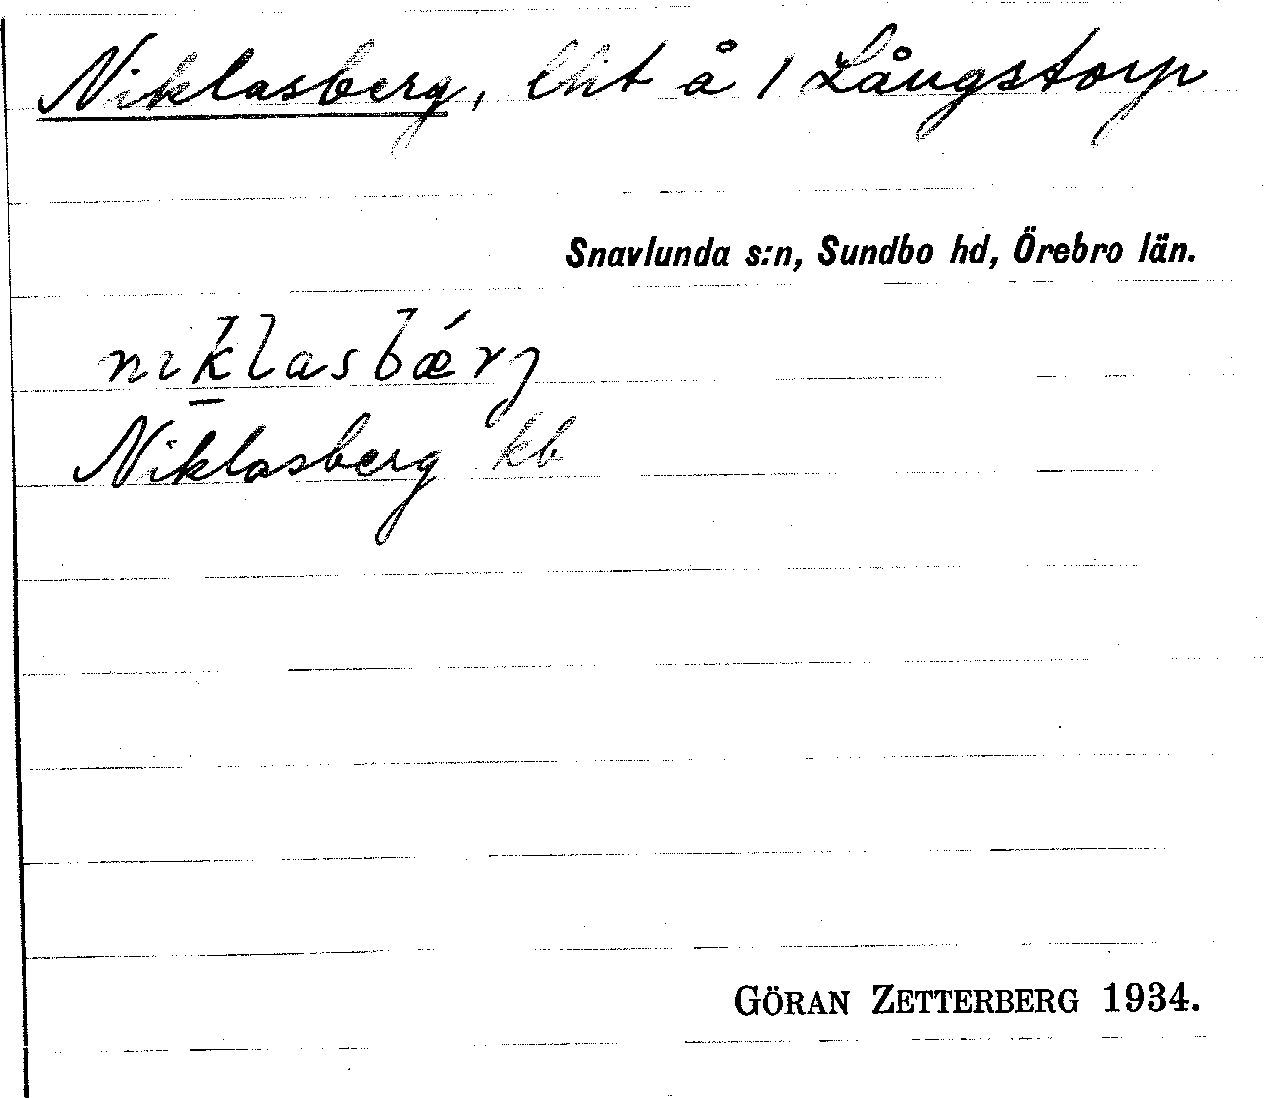 Niklasberg, lht å 1 Långstorp
Snavlunda s:n, Sundbo hd, Örebro län.
niklasbærj
Niklasberg kb
GÖRAN ZETTERBERG 1934.